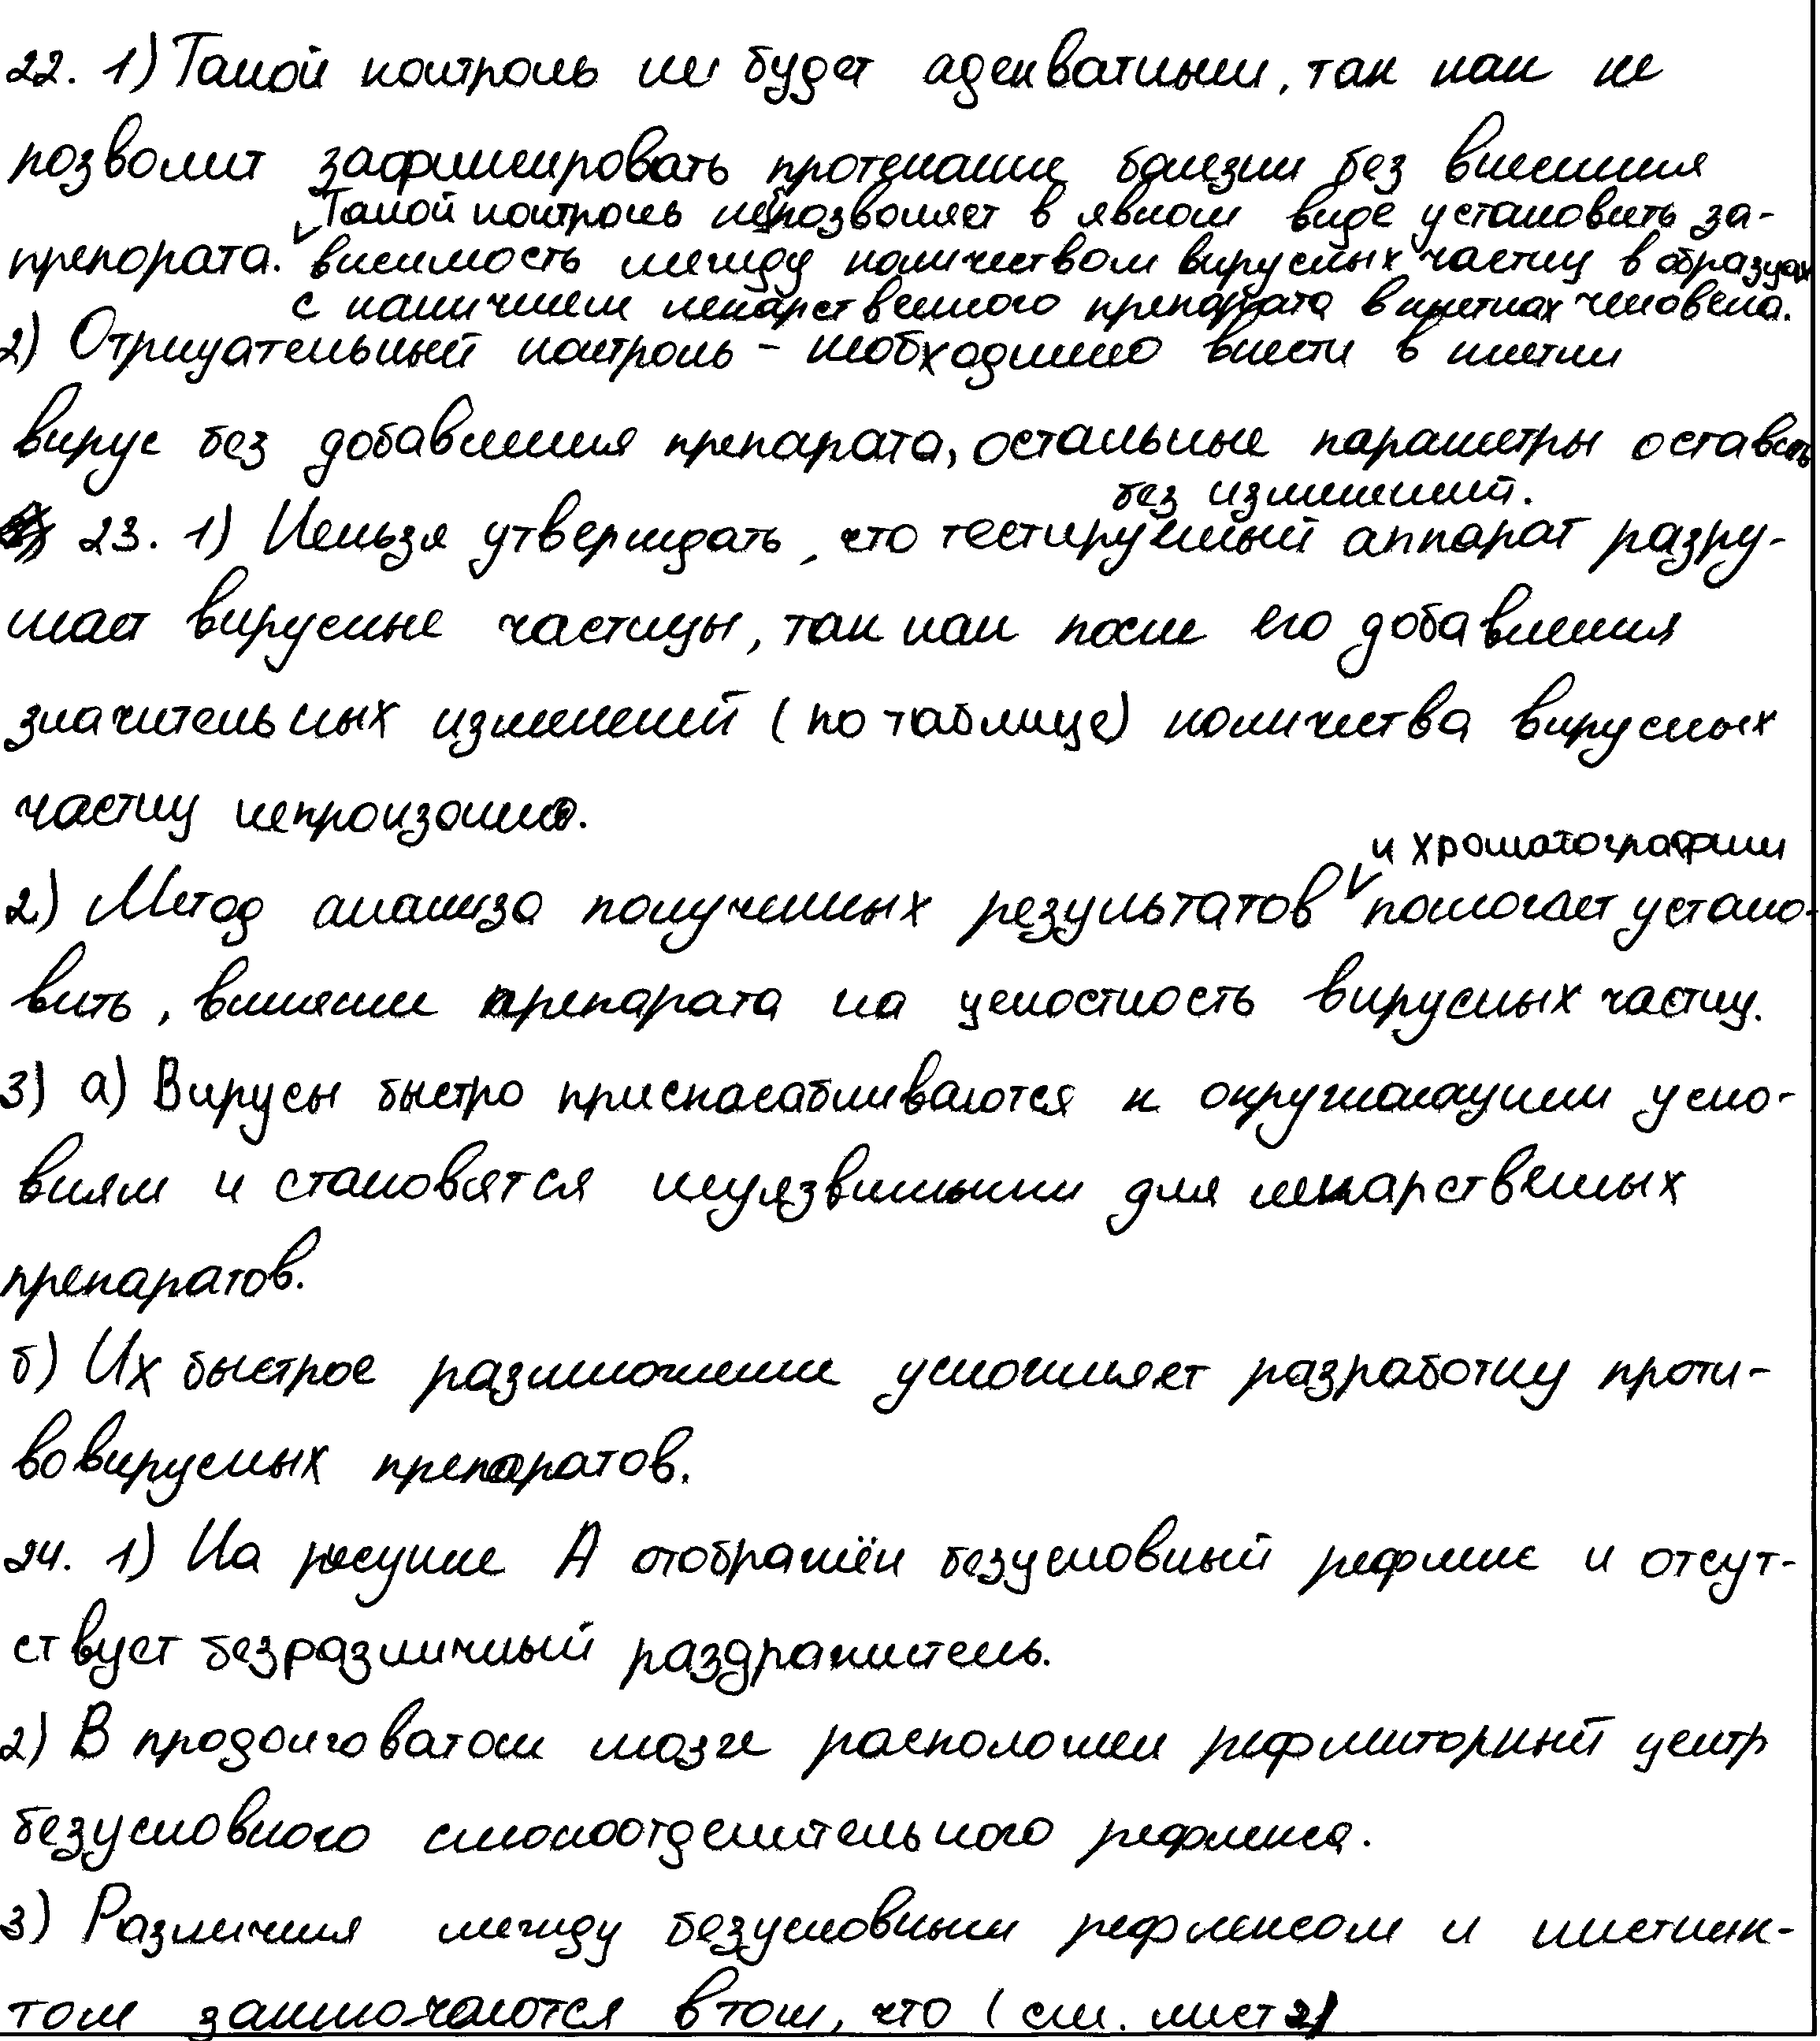 22. 1) Такой контроль не будет адекватным, так как не
позволит зафиксировать протекание болезни без внесения
Такой контроль не позволяет в явном виде установить за-
препарата. висимость между количеством вирусных частиц в образцах
с наличием лекарственного препарата в клетках человека.
2) Отрицательный контроль - необходимо внести в клетки
вирус без добавления препарата, остальные параметры оставить
без изменений.
23. 1) Нельзя утверждать, что тестируемый аппарат разру-
шает вирусные частицы, так как после его добавления
значительных изменений (по таблице) количества вирусных
частиц непроизошло.
и хроматографии
2) Метод анализа полученных результатов помогает устано-
вить, влияние препарата на целостность вирусных частиц.
3) а) Вирусы быстро приспосабливаются к окружающим усло-
виям и становятся неуязвимыми для лекарственых
препаратов.
б) Их быстрое размножение усложняет разработку проти-
вовирусных препаратов.
24. 1) На рисунке А отображён безусловный рефлекс и отсут-
ствует безразличный раздражитель.
2) В продолговатом мозге расположен рефлекторный центр
безусловного слюноотделительного рефлекса.
3) Различия между безусловным рефлексом и инстинк-
том заключаются в том, что (см. лист 2)